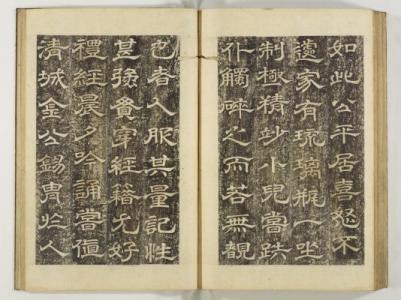 如此公平居喜怒不
遽家有琉璃瓶一坐
制極精妙小兒嘗跌
仆觸碎之而若無覩
也者人服其量記性
甚強貫穿經籍尤好
禮經晨夕吟誦嘗値
清城金公錫冑於人